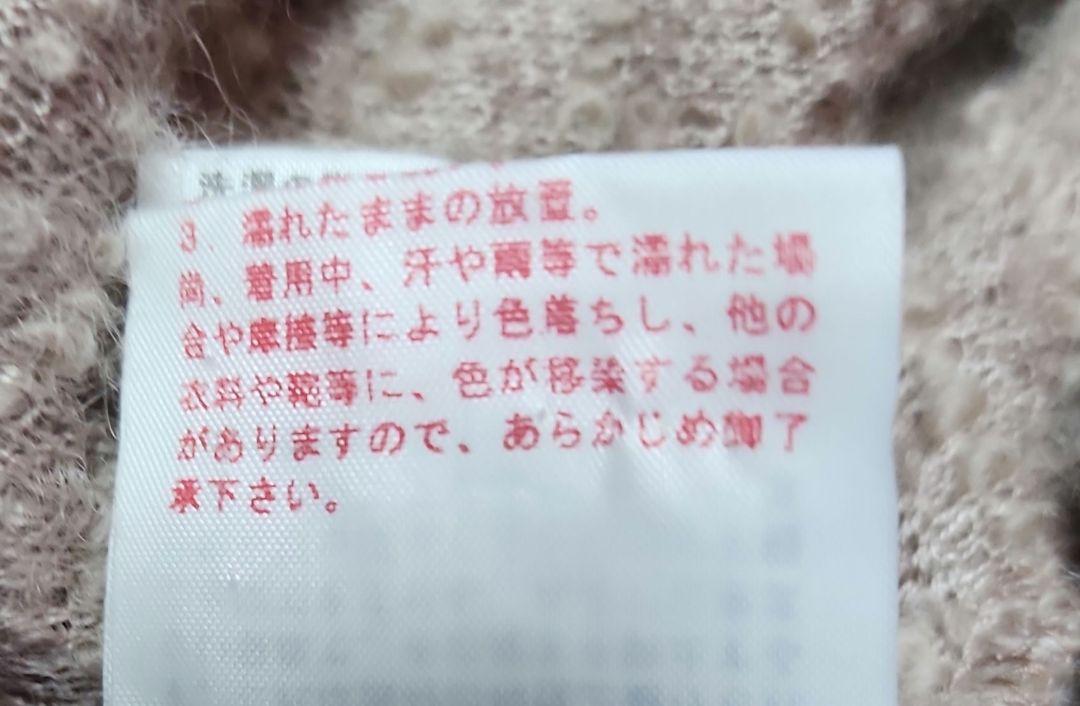 3. 濡れたままの放置。
尚、着用中、汗や雨等で濡れた場
合や摩擦等により色落ちし、他の
衣料や鞄等に、色が移染する場合
がありますので、あらかじめ御了
承下さい。